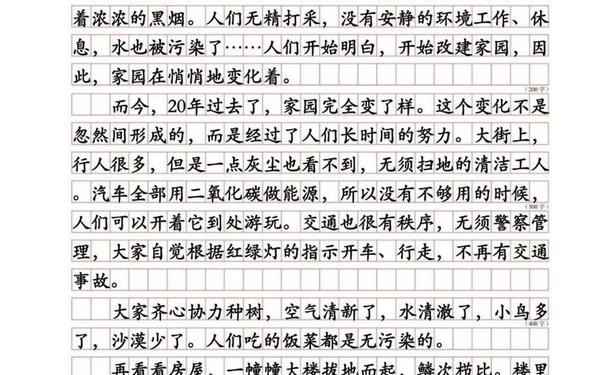 着浓浓的黑烟。人们无精打采，没有安静的环境工作、休
息，水也被污染了……人们开始明白，开始改建家园，因
此，家园在悄悄地变化着。
(200字)
而今，20年过去了，家园完全变了样。这个变化不是
忽然间形成的，而是经过了人们长时间的努力。大街上，
行人很多，但是一点灰尘也看不到，无须扫地的清洁工人
。汽车全部用二氧化碳做能源，所以没有不够用的时候，
(300字)
人们可以开着它到处游玩。交通也很有秩序，无须警察管
理，大家自觉根据红绿灯的指示开车、行走，不再有交通
事故。
大家齐心协力种树，空气清新了，水清澈了，小鸟多
(400字)
了，沙漠少了。人们吃的饭菜都是无污染的。
再看看房屋，一幢幢大楼拔地而起，鳞次栉比。楼里